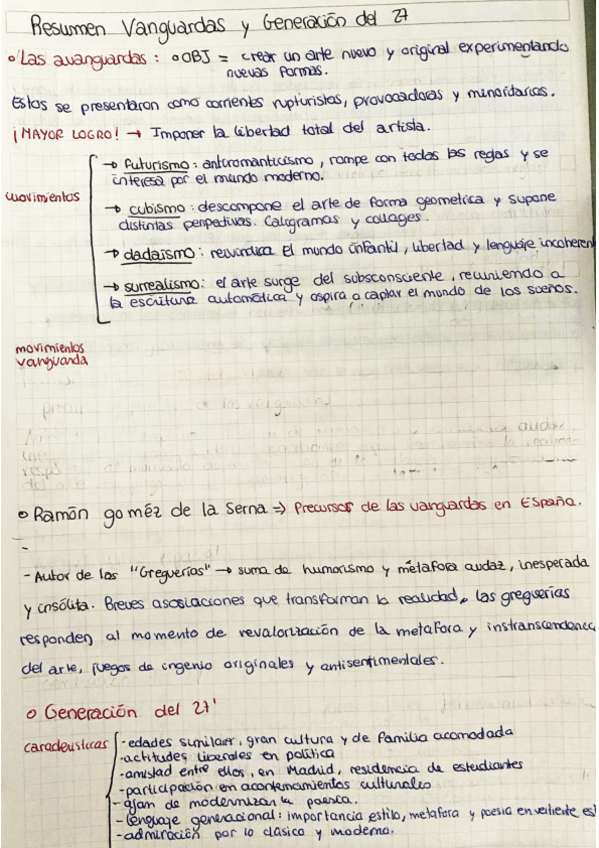 Resumen Vanguardas y Generación del 27
Las avanguardas: OBJ = crear un arte nuevo y original experimentando
nuevas formas.
Estos se presentaron como corrientes rupturistas, provocadoras y minoritarias.
¡MAYOR LOGRO! → Imponer la libertad total del artista.
movimientos
→ futurismo: antiromanticismo, rompe con todas las reglas y se
interesa por el mundo moderno.
→ cubismo: descompone el arte de forma geometrica y supone
distintas perspectivas. Caligramas y collages.
→ dadaismo: reivindica El mundo infantil, libertad y lenguaje incoheren
→ surrealismo: el arte surge del subsconsciente, recurriendo a
la escritura automática y aspira a captar el mundo de los sueños.
movimientos
vanguarda
Ramón goméz de la Serna ⇒ Precursor de las vanguardas en España.
- Autor de las "Greguerías" → suma de humorismo y metáfora audaz, inesperada
y insólita. Breves asosiaciones que transforman la realidad, las greguerías
responden, al momento de revalorización de la metafora y instranscendenc
del arte, juegos de ingenio originales y antisentimentales.
Generación del 27'
caracteristicas
- edades similares, gran cultura y de familia acomodada
- actitudes liberales en política
- amistad entre ellos, en Madrid, residencia de estudiantes
- participación en acontenamientos culturales
- afan de modernizar la poesia.
- lenguaje generacional: importancia estilo, metafora y poesia en es
- admiración por lo clásico y moderno.